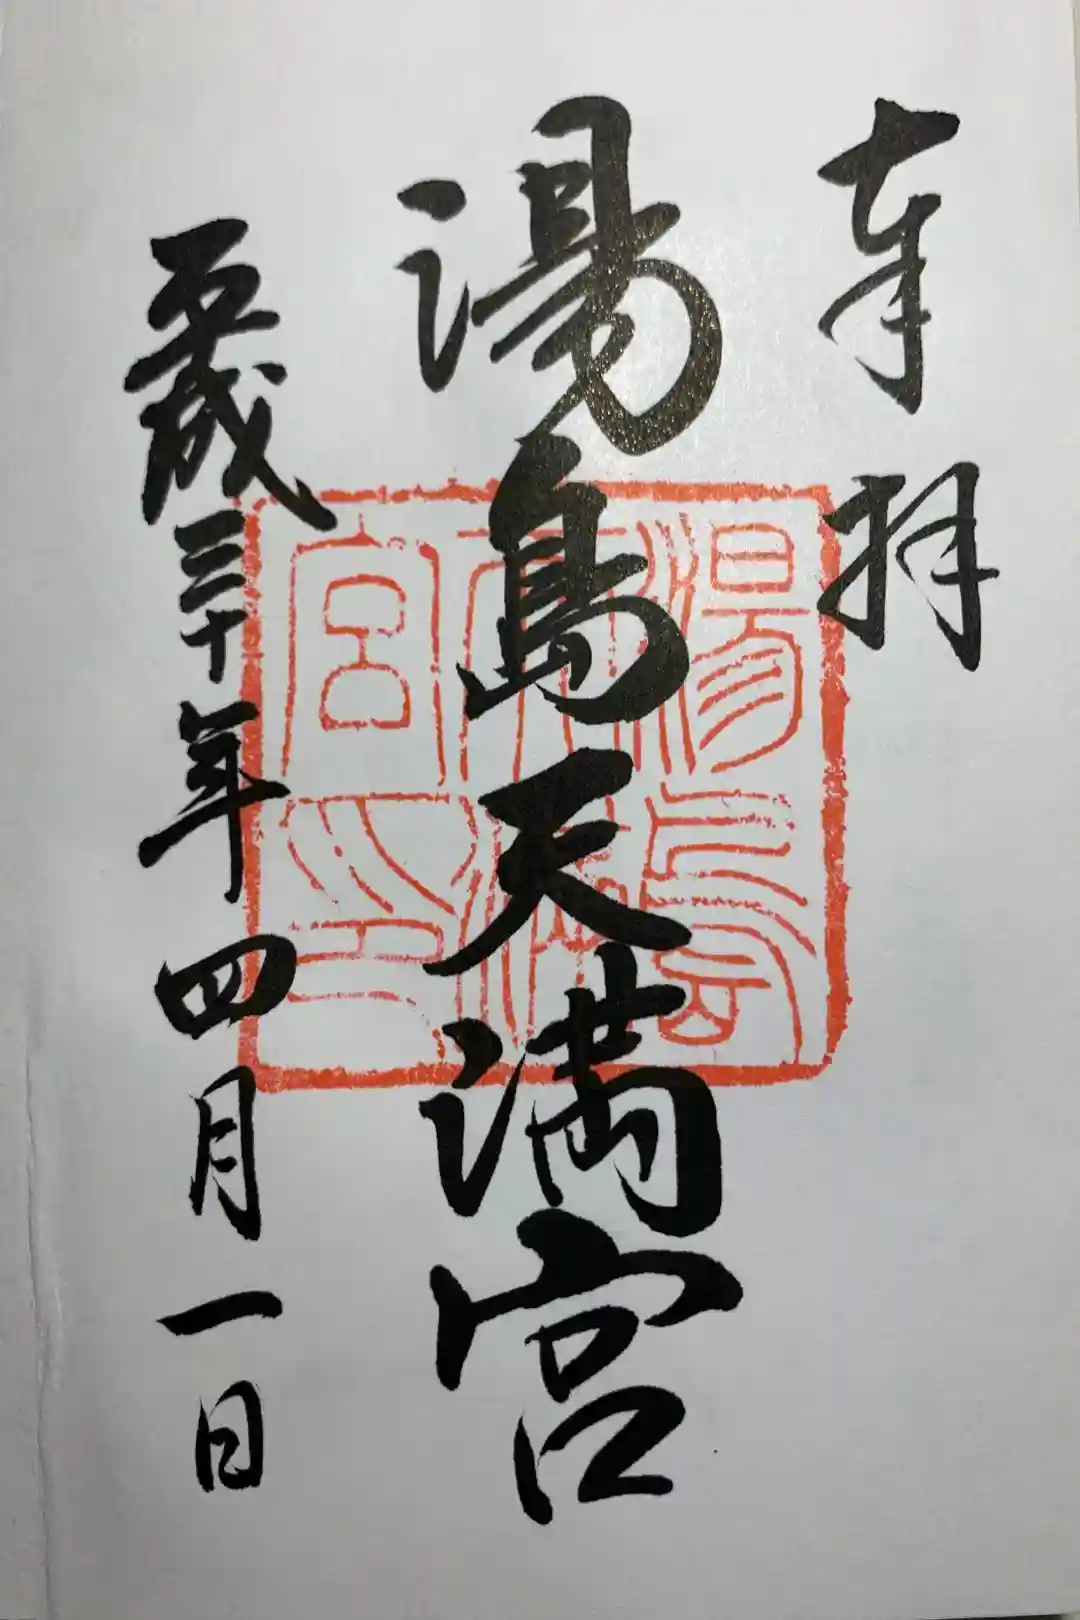 奉拝
湯島天満宮
平成三十年四月一日
湯島
天満
宮印